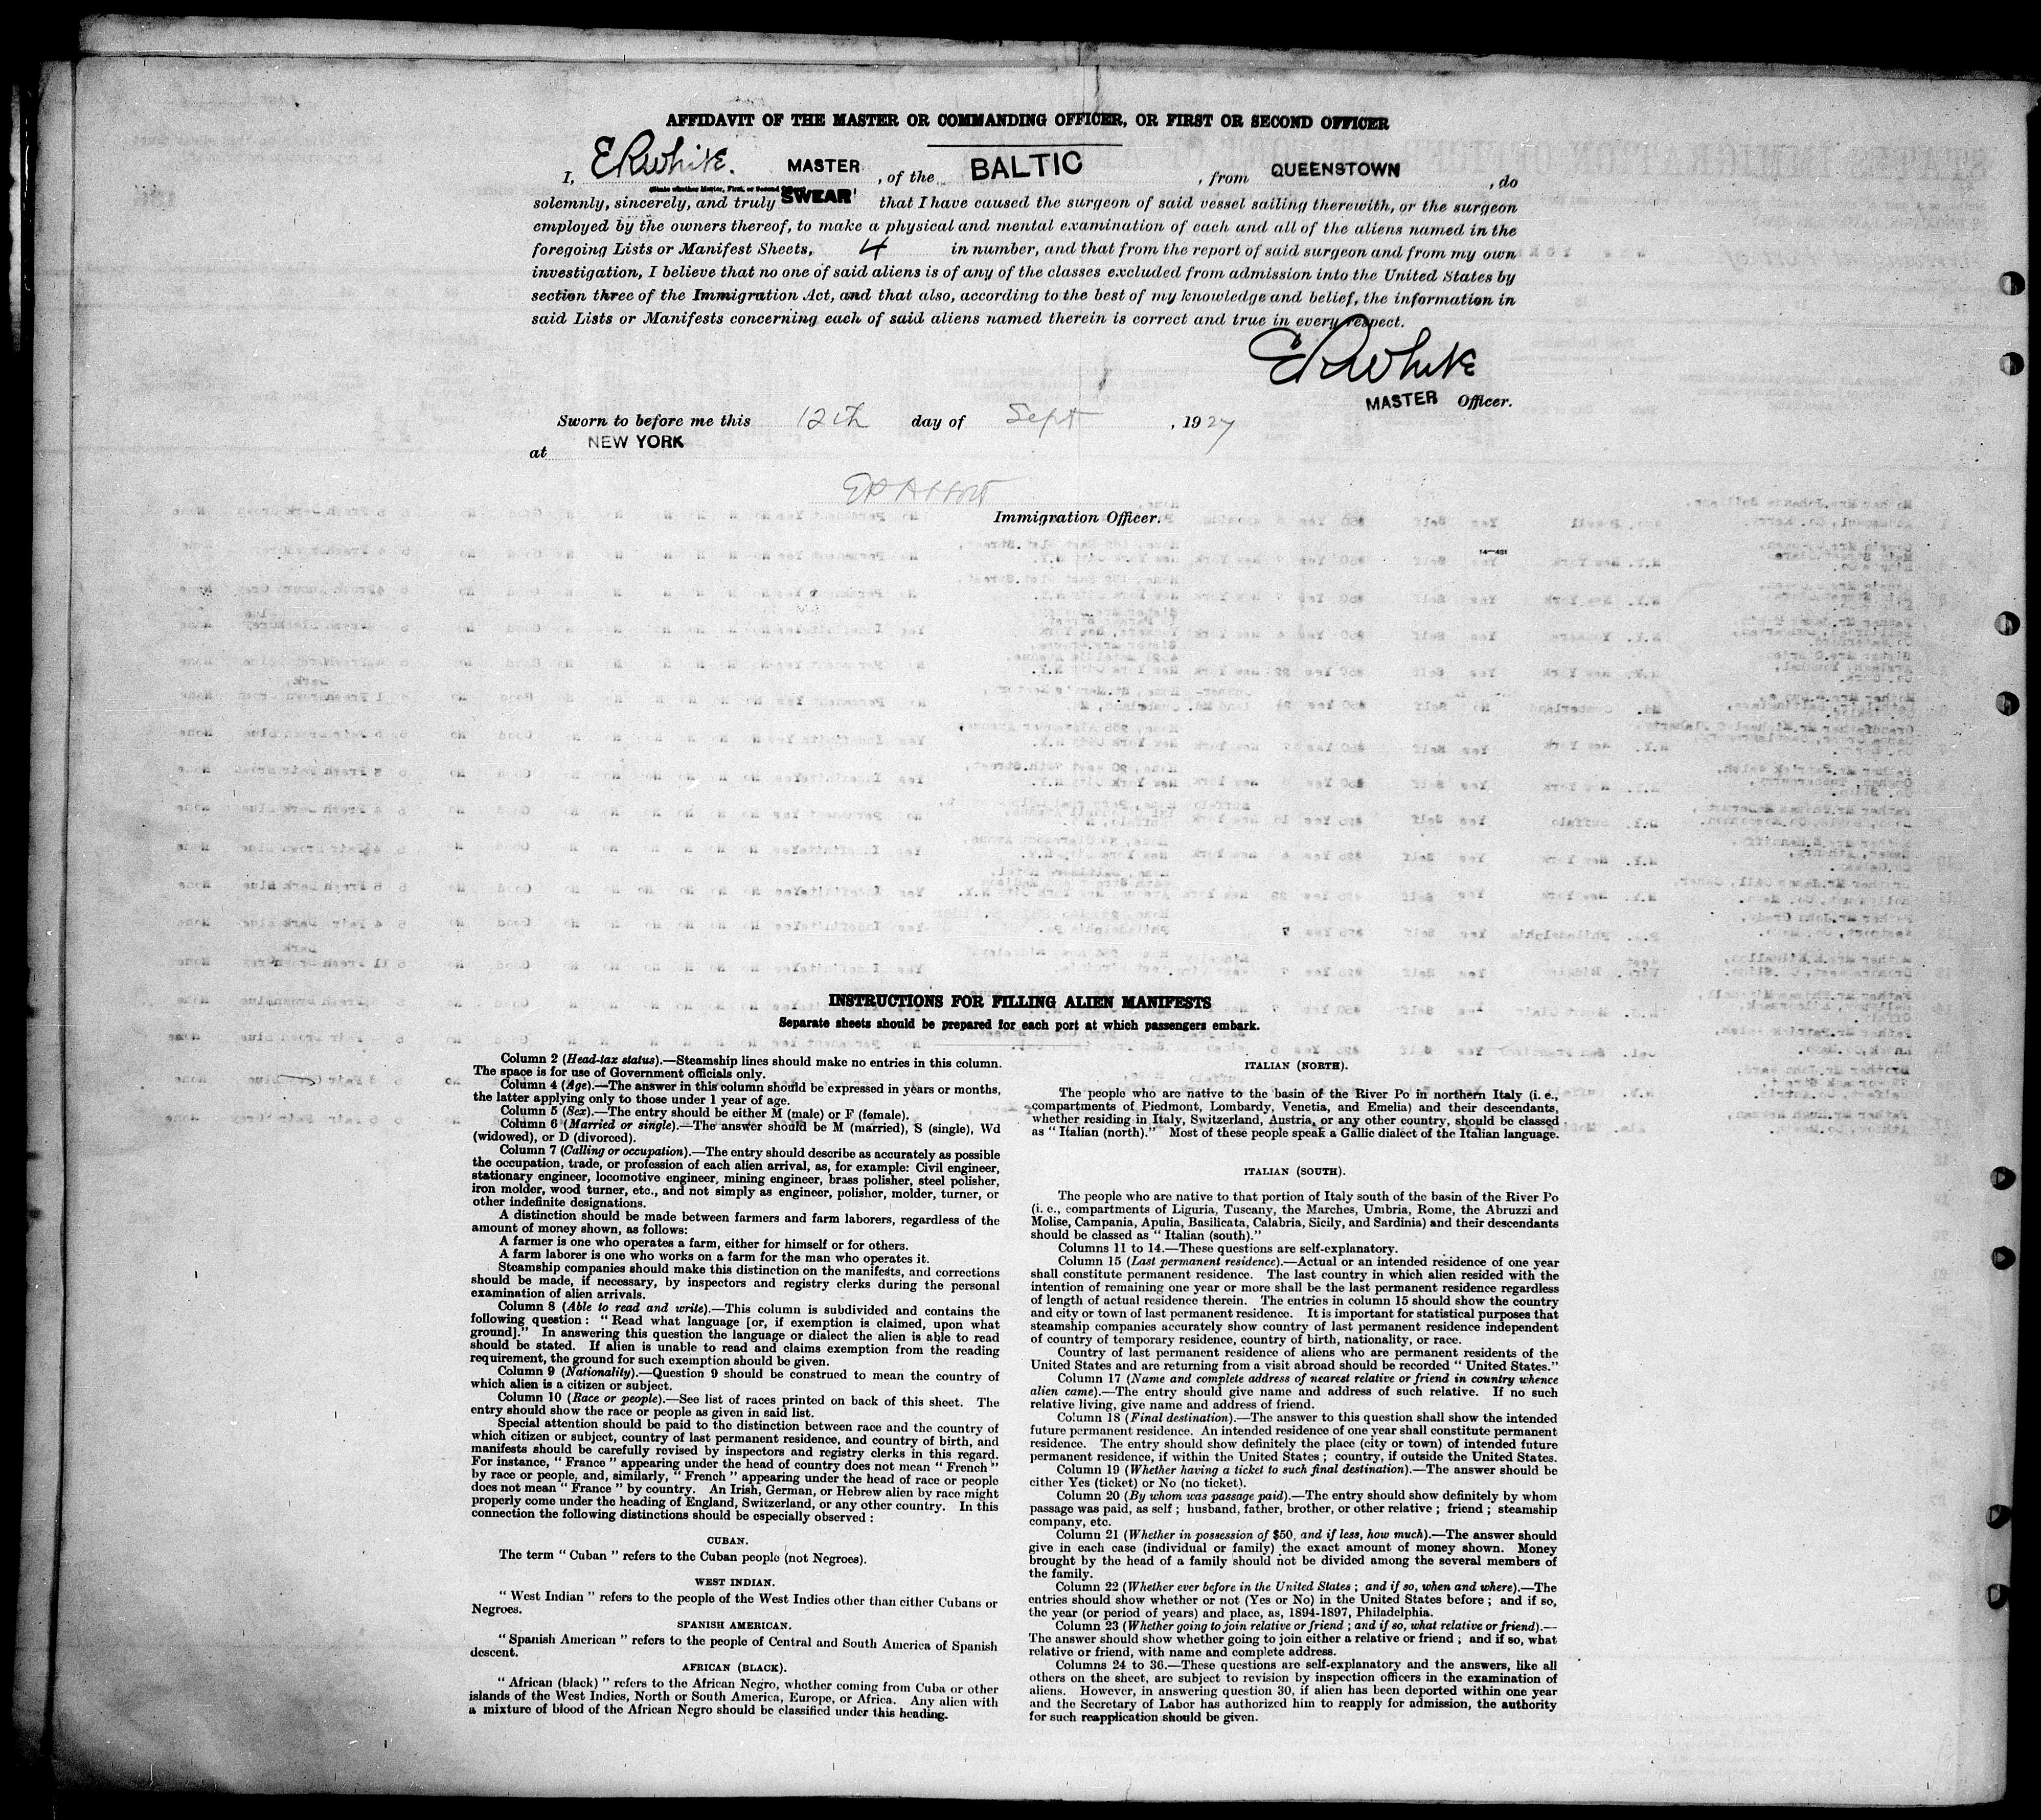 AFFIDAVIT OF THE MASTER OR COMMANDING OFFICER, OR FIRST OR SECOND OFFICER
I, ERWhite. MASTER, of the BALTIC, from QUEENSTOWN, do
(State whether Master, First, or Second Officer)
solemnly, sincerely, and truly SWEAR that I have caused the surgeon of said vessel sailing therewith, or the surgeon
employed by the owners thereof, to make a physical and mental examination of each and all of the aliens named in the
foregoing Lists or Manifest Sheets, 4 in number, and that from the report of said surgeon and from my own
investigation, I believe that no one of said aliens is of any of the classes excluded from admission into the United States by
section three of the Immigration Act, and that also, according to the best of my knowledge and belief, the information in
said Lists or Manifests concerning each of said aliens named therein is correct and true in every respect.
ERWhite
MASTER Officer.
Sworn to before me this 12th day of Sept, 1927
at NEW YORK
Immigration Officer.
14—431
INSTRUCTIONS FOR FILLING ALIEN MANIFESTS
Separate sheets should be prepared for each port at which passengers embark.
Column 2 (Head-tax status).—Steamship lines should make no entries in this column.
The space is for use of Government officials only.
Column 4 (Age).—The answer in this column should be expressed in years or months,
the latter applying only to those under 1 year of age.
Column 5 (Sex).—The entry should be either M (male) or F (female).
Column 6 (Married or single).—The answer should be M (married), S (single), Wd
(widowed), or D (divorced).
Column 7 (Calling or occupation).—The entry should describe as accurately as possible
the occupation, trade, or profession of each alien arrival, as, for example: Civil engineer,
stationary engineer, locomotive engineer, mining engineer, brass polisher, steel polisher,
iron molder, wood turner, etc., and not simply as engineer, polisher, molder, turner, or
other indefinite designations.
A distinction should be made between farmers and farm laborers, regardless of the
amount of money shown, as follows:
A farmer is one who operates a farm, either for himself or for others.
A farm laborer is one who works on a farm for the man who operates it.
Steamship companies should make this distinction on the manifests, and corrections
should be made, if necessary, by inspectors and registry clerks during the personal
examination of alien arrivals.
Column 8 (Able to read and write).—This column is subdivided and contains the
following question: "Read what language [or, if exemption is claimed, upon what
ground]." In answering this question the language or dialect the alien is able to read
should be stated. If alien is unable to read and claims exemption from the reading
requirement, the ground for such exemption should be given.
Column 9 (Nationality).—Question 9 should be construed to mean the country of
which alien is a citizen or subject.
Column 10 (Race or people).—See list of races printed on back of this sheet. The
entry should show the race or people as given in said list.
Special attention should be paid to the distinction between race and the country of
which citizen or subject, country of last permanent residence, and country of birth, and
manifests should be carefully revised by inspectors and registry clerks in this regard.
For instance, "France" appearing under the head of country does not mean "French"
by race or people, and, similarly, "French" appearing under the head of race or people
does not mean "France" by country. An Irish, German, or Hebrew alien by race might
properly come under the heading of England, Switzerland, or any other country. In this
connection the following distinctions should be especially observed:
CUBAN.
The term "Cuban" refers to the Cuban people (not Negroes).
WEST INDIAN.
"West Indian" refers to the people of the West Indies other than either Cubans or
Negroes.
SPANISH AMERICAN.
"Spanish American" refers to the people of Central and South America of Spanish
descent.
AFRICAN (BLACK).
"African (black)" refers to the African Negro, whether coming from Cuba or other
islands of the West Indies, North or South America, Europe, or Africa. Any alien with
a mixture of blood of the African Negro should be classified under this heading.
ITALIAN (NORTH).
The people who are native to the basin of the River Po in northern Italy (i. e.,
compartments of Piedmont, Lombardy, Venetia, and Emelia) and their descendants,
whether residing in Italy, Switzerland, Austria, or any other country, should be classed
as "Italian (north)." Most of these people speak a Gallic dialect of the Italian language.
ITALIAN (SOUTH).
The people who are native to that portion of Italy south of the basin of the River Po
(i. e., compartments of Liguria, Tuscany, the Marches, Umbria, Rome, the Abruzzi and
Molise, Campania, Apulia, Basilicata, Calabria, Sicily, and Sardinia) and their descendants
should be classed as "Italian (south)."
Columns 11 to 14.—These questions are self-explanatory.
Column 15 (Last permanent residence).—Actual or an intended residence of one year
shall constitute permanent residence. The last country in which alien resided with the
intention of remaining one year or more shall be the last permanent residence regardless
of length of actual residence therein. The entries in column 15 should show the country
and city or town of last permanent residence. It is important for statistical purposes that
steamship companies accurately show country of last permanent residence independent
of country of temporary residence, country of birth, nationality, or race.
Country of last permanent residence of aliens who are permanent residents of the
United States and are returning from a visit abroad should be recorded "United States."
Column 17 (Name and complete address of nearest relative or friend in country whence
alien came).—The entry should give name and address of such relative. If no such
relative living, give name and address of friend.
Column 18 (Final destination).—The answer to this question shall show the intended
future permanent residence. An intended residence of one year shall constitute permanent
residence. The entry should show definitely the place (city or town) of intended future
permanent residence, if within the United States; country, if outside the United States.
Column 19 (Whether having a ticket to such final destination).—The answer should be
either Yes (ticket) or No (no ticket).
Column 20 (By whom was passage paid).—The entry should show definitely by whom
passage was paid, as self; husband, father, brother, or other relative; friend; steamship
company, etc.
Column 21 (Whether in possession of $50, and if less, how much).—The answer should
give in each case (individual or family) the exact amount of money shown. Money
brought by the head of a family should not be divided among the several members of
the family.
Column 22 (Whether ever before in the United States; and if so, when and where).—The
entries should show whether or not (Yes or No) in the United States before; and if so,
the year (or period of years) and place, as, 1894-1897, Philadelphia.
Column 23 (Whether going to join relative or friend; and if so, what relative or friend).—
The answer should show whether going to join either a relative or friend; and if so, what
relative or friend, with name and complete address.
Columns 24 to 36.—These questions are self-explanatory and the answers, like all
others on the sheet, are subject to revision by inspection officers in the examination of
aliens. However, in answering question 30, if alien has been deported within one year
and the Secretary of Labor has authorized him to reapply for admission, the authority
for such reapplication should be given.